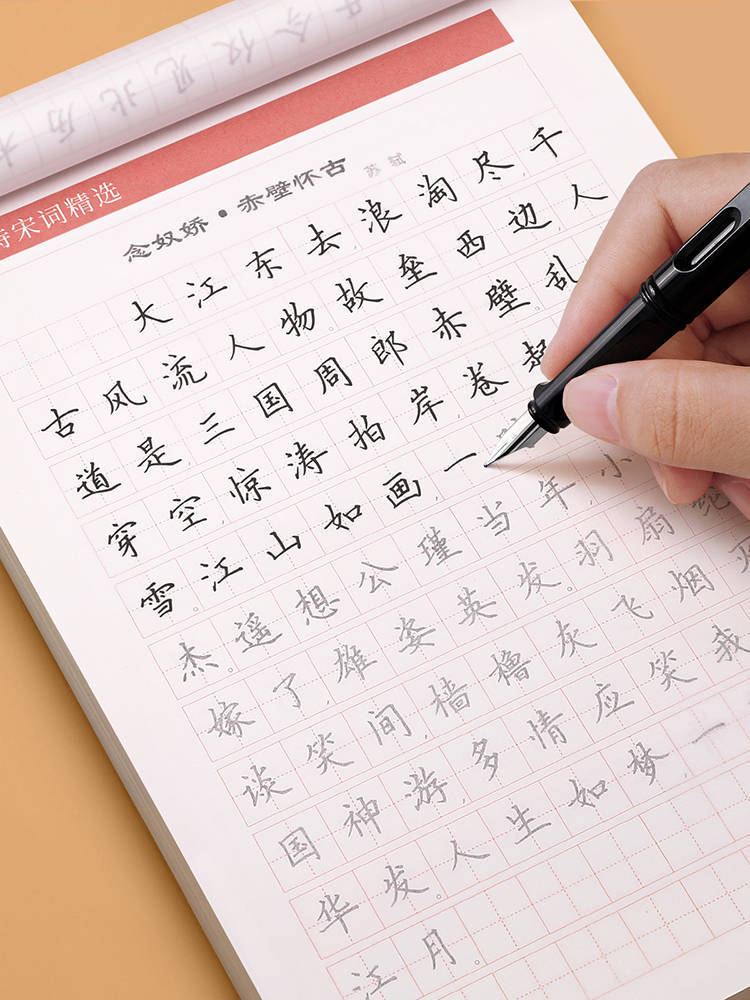 诗宋词精选
念奴娇·赤壁怀古 苏轼
大江东去,浪淘尽,千
古风流人物。故垒西边,人
道是,三国周郎赤壁。乱
穿空,惊涛拍岸,卷起
雪。江山如画,一
杰。遥想公瑾当年,小
嫁了,雄姿英发。羽扇纶
谈笑间,樯橹灰飞烟灭
国神游,多情应笑我
华发。人生如梦,一
江月。